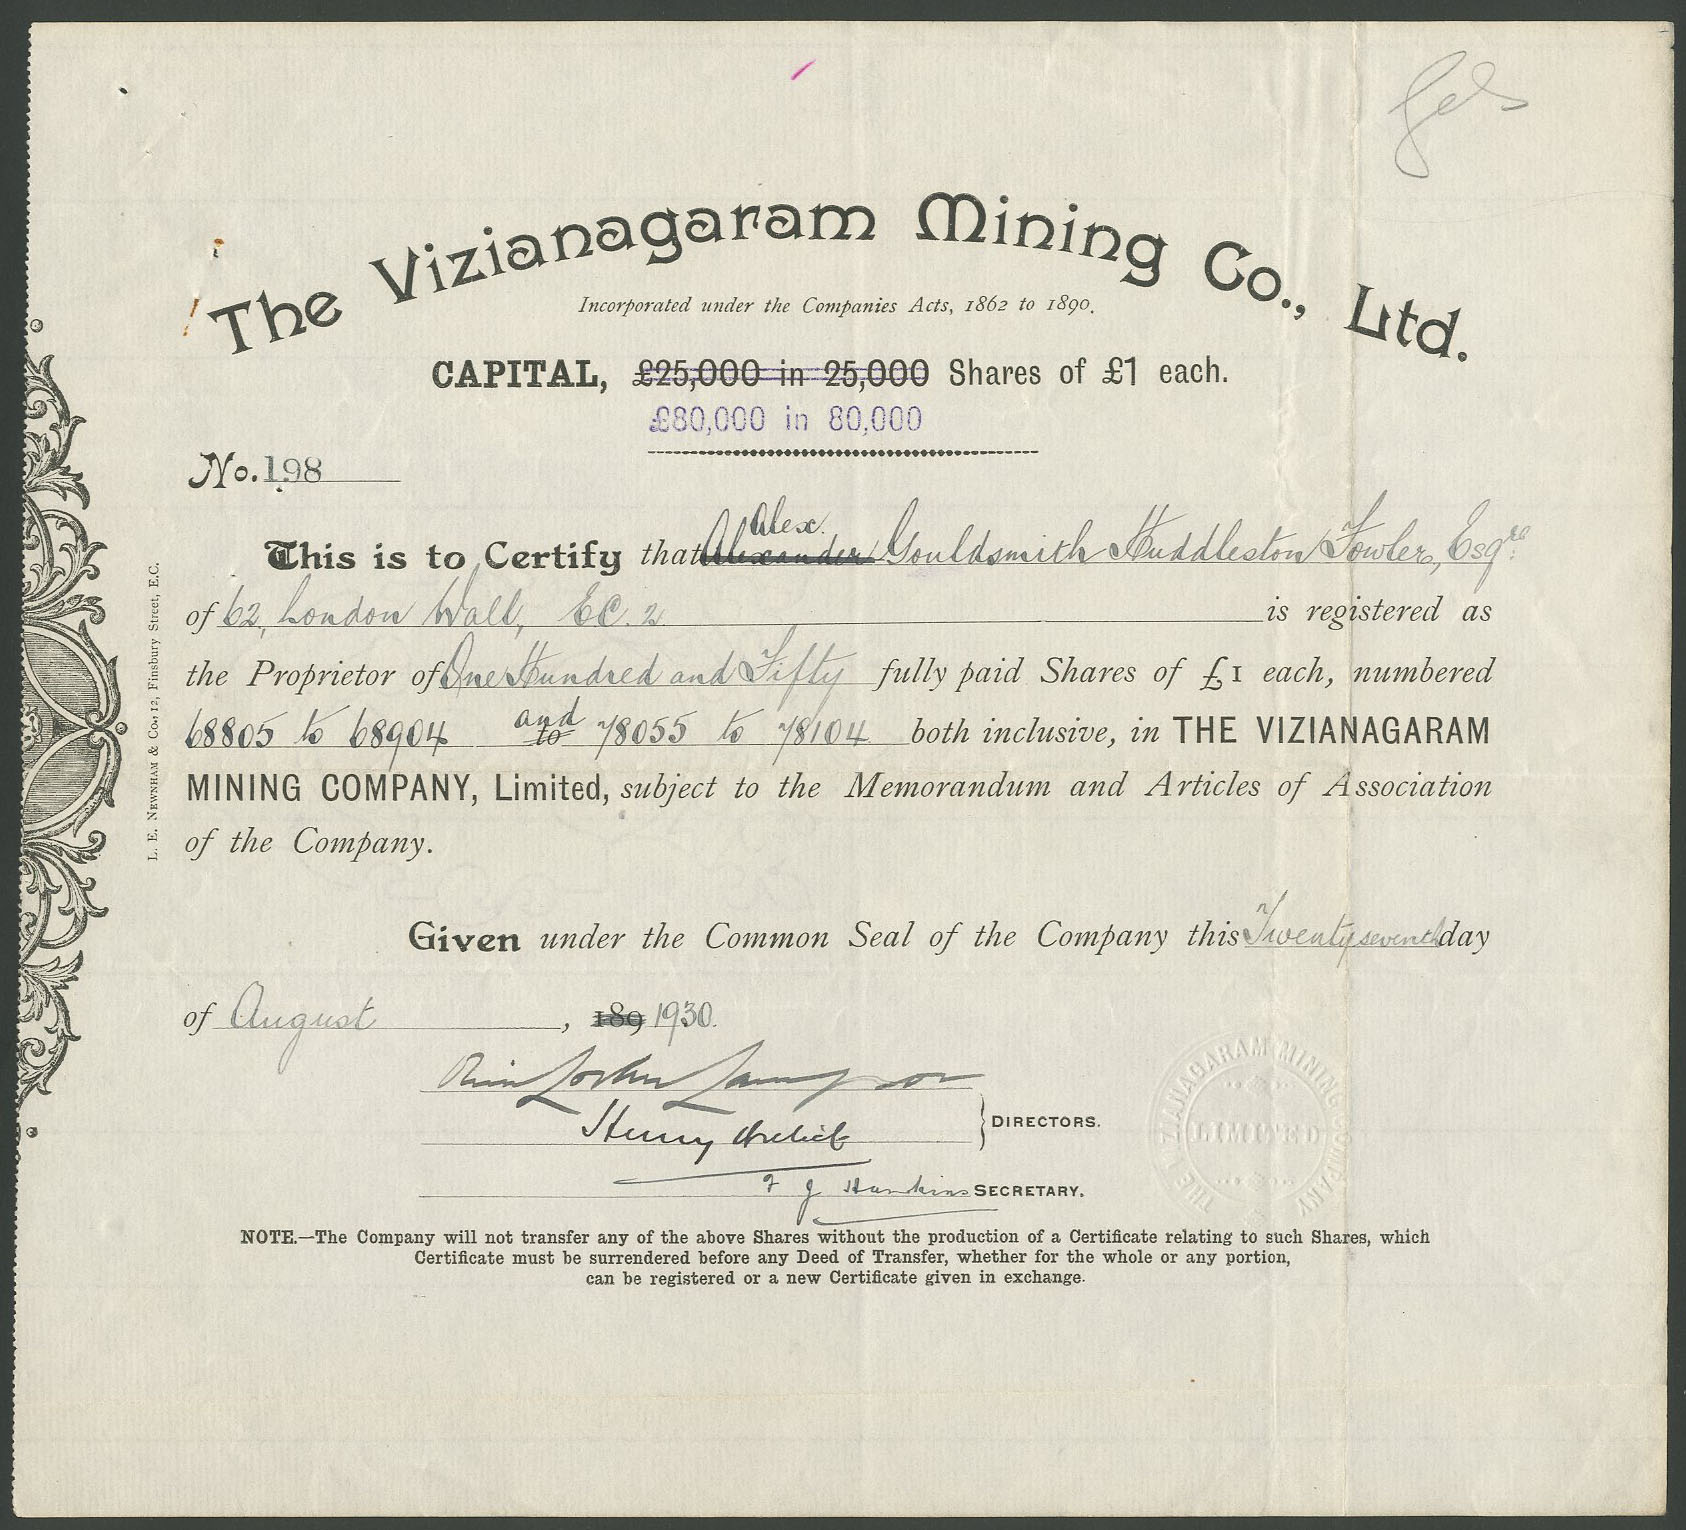 The Vizianagaram Mining Co., Ltd.
Incorporated under the Companies Acts, 1862 to 1890.
CAPITAL, £25,000 in 25,000 Shares of £1 each.
£80,000 in 80,000
No. 198
Alex.
This is to Certify that Alexander Gouldsmith Huddleston Fowler, Esqre
of 62, London Wall, EC. 2 is registered as
the Proprietor of One Hundred and Fifty fully paid Shares of £1 each, numbered
68805 to 68904 and to 78055 to 78104 both inclusive, in THE VIZIANAGARAM
MINING COMPANY, Limited, subject to the Memorandum and Articles of Association
of the Company.
Given under the Common Seal of the Company this Twenty seventh day
of August, 189 1930.
Henry
DIRECTORS.
F J Hawkins SECRETARY.
THE VIZIANAGARAM MINING COMPANY
LIMITED
NOTE.—The Company will not transfer any of the above Shares without the production of a Certificate relating to such Shares, which
Certificate must be surrendered before any Deed of Transfer, whether for the whole or any portion,
can be registered or a new Certificate given in exchange.
L. E. NEWNHAM & Co., 12, Finsbury Street, E.C.